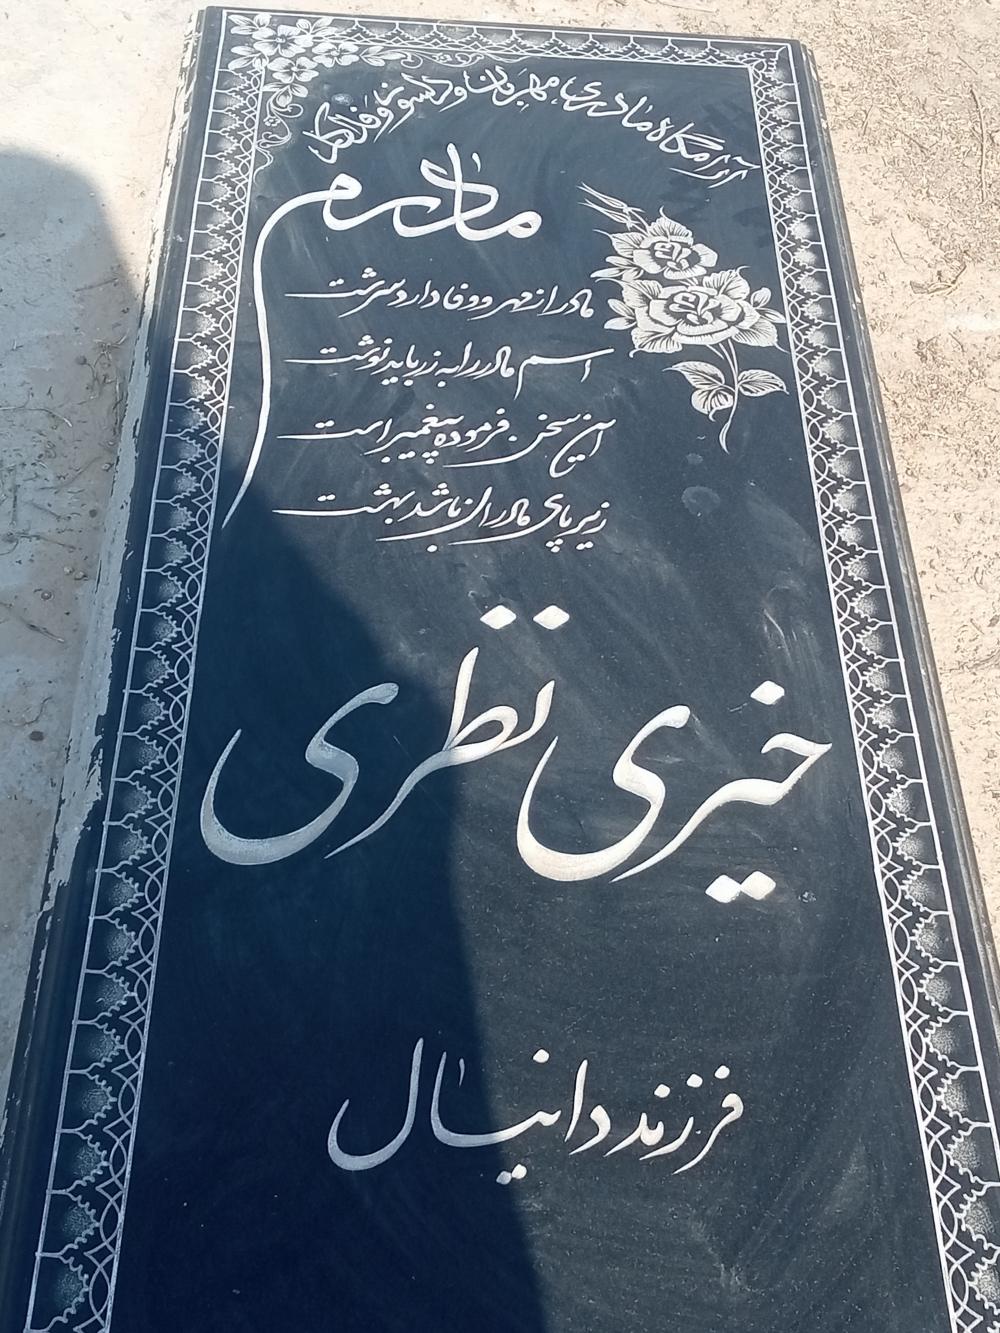 آرامگاه مادری مهربان و دلسوز و فداکار
مادرم
مادر از مهر و وفا دارد سرشت
اسم مادر را به زر باید نوشت
این سخن فرموده پیغمبر است
زیر پای مادران باشد بهشت
خیری نظری
فرزند دانیال